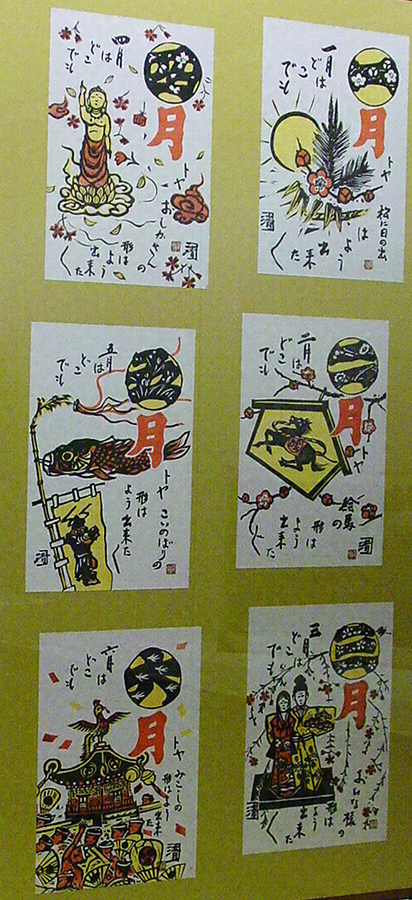 一月は
どこ
でも
月
トヤ
松に日の出
は
よう
出来
た〱
二月は
どこ
でも
月
トヤ
絵馬の
形は
よう
出来
た〱
三月は
どこ
でも
月
おひな様の
形は
よう
出来
た〱
四月
は
どこ
でも
月
トヤ
おしかさんの
形は
よう
出来
た〱
五月
は
どこ
でも
月
トヤ
こいのぼりの
形は
よう出来た〱
六月
は
どこ
でも
月
トヤ
みこしの
形はよう
出来
た〱